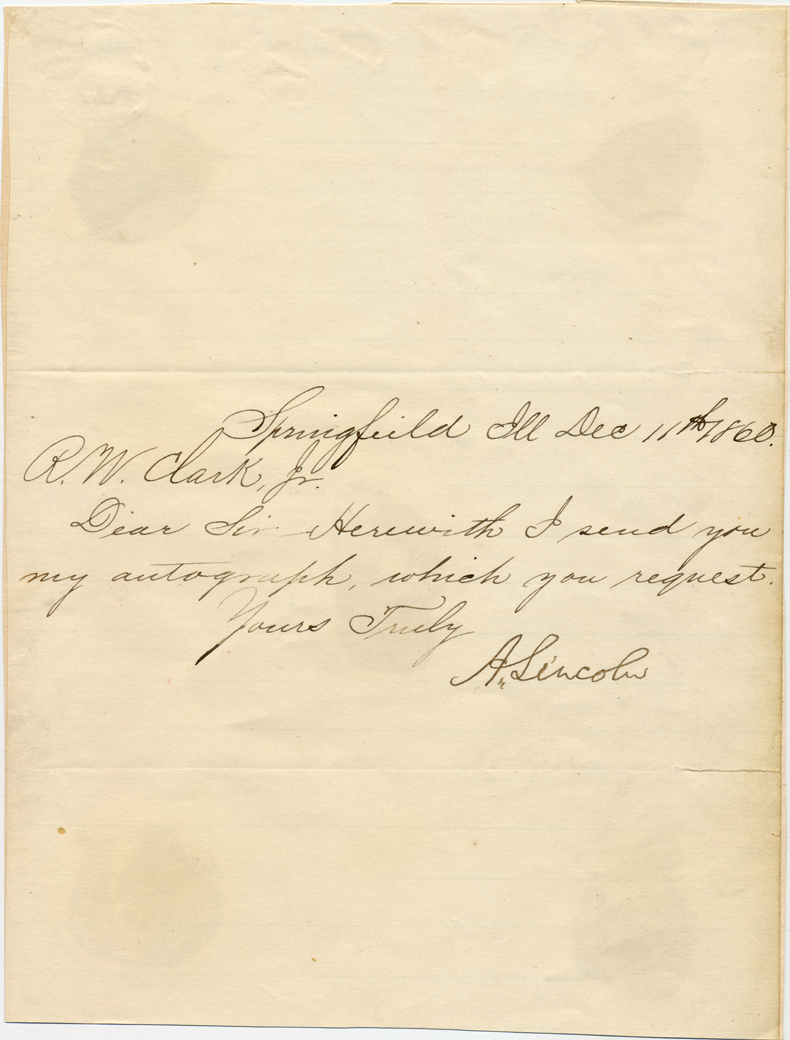 Springfeild Ill Dec 11th 1860.
R. W. Clark, Jr.
Dear Sir Herewith I send you
my autograph, which you request.
Yours Truly
A. Lincoln